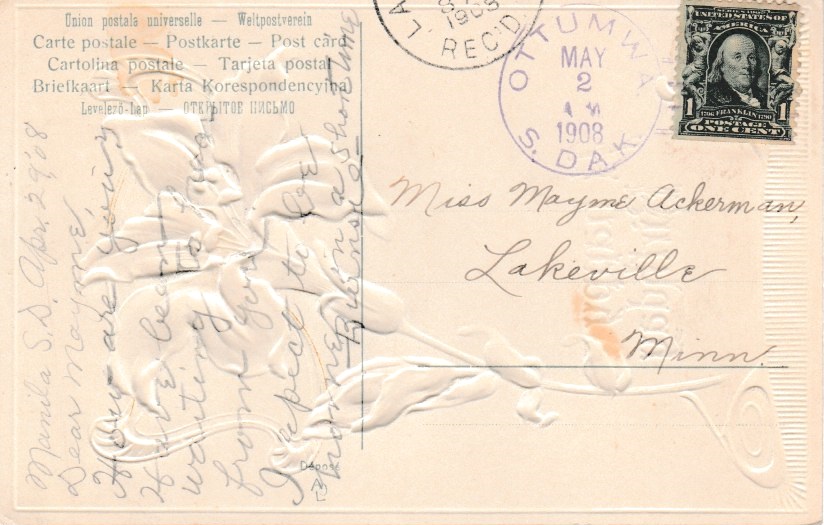 Union postale universelle — Weltpostverein
Carte postale — Postkarte — Post card
Cartolina postale — Tarjeta postal
Briefkaart — Karta Korespondencyjna
Levelező-Lap — ОТКРЫТОЕ ПИСЬМО
LA
1908
REC'D.
OTTUMWA
MAY
2
A M
1908
S. DAK.
SERIES 1902
UNITED STATES OF
AMERICA
1 1
1706 FRANKLIN 1790
POSTAGE
ONE CENT
Miss Mayme Ackerman,
Lakeville
Minn.
Manila S.D. Apr. 29 08
Dear Mayme,
How are you?
Have been
waiting to hear
from you.
I expect to be
home in a short time
Déposé